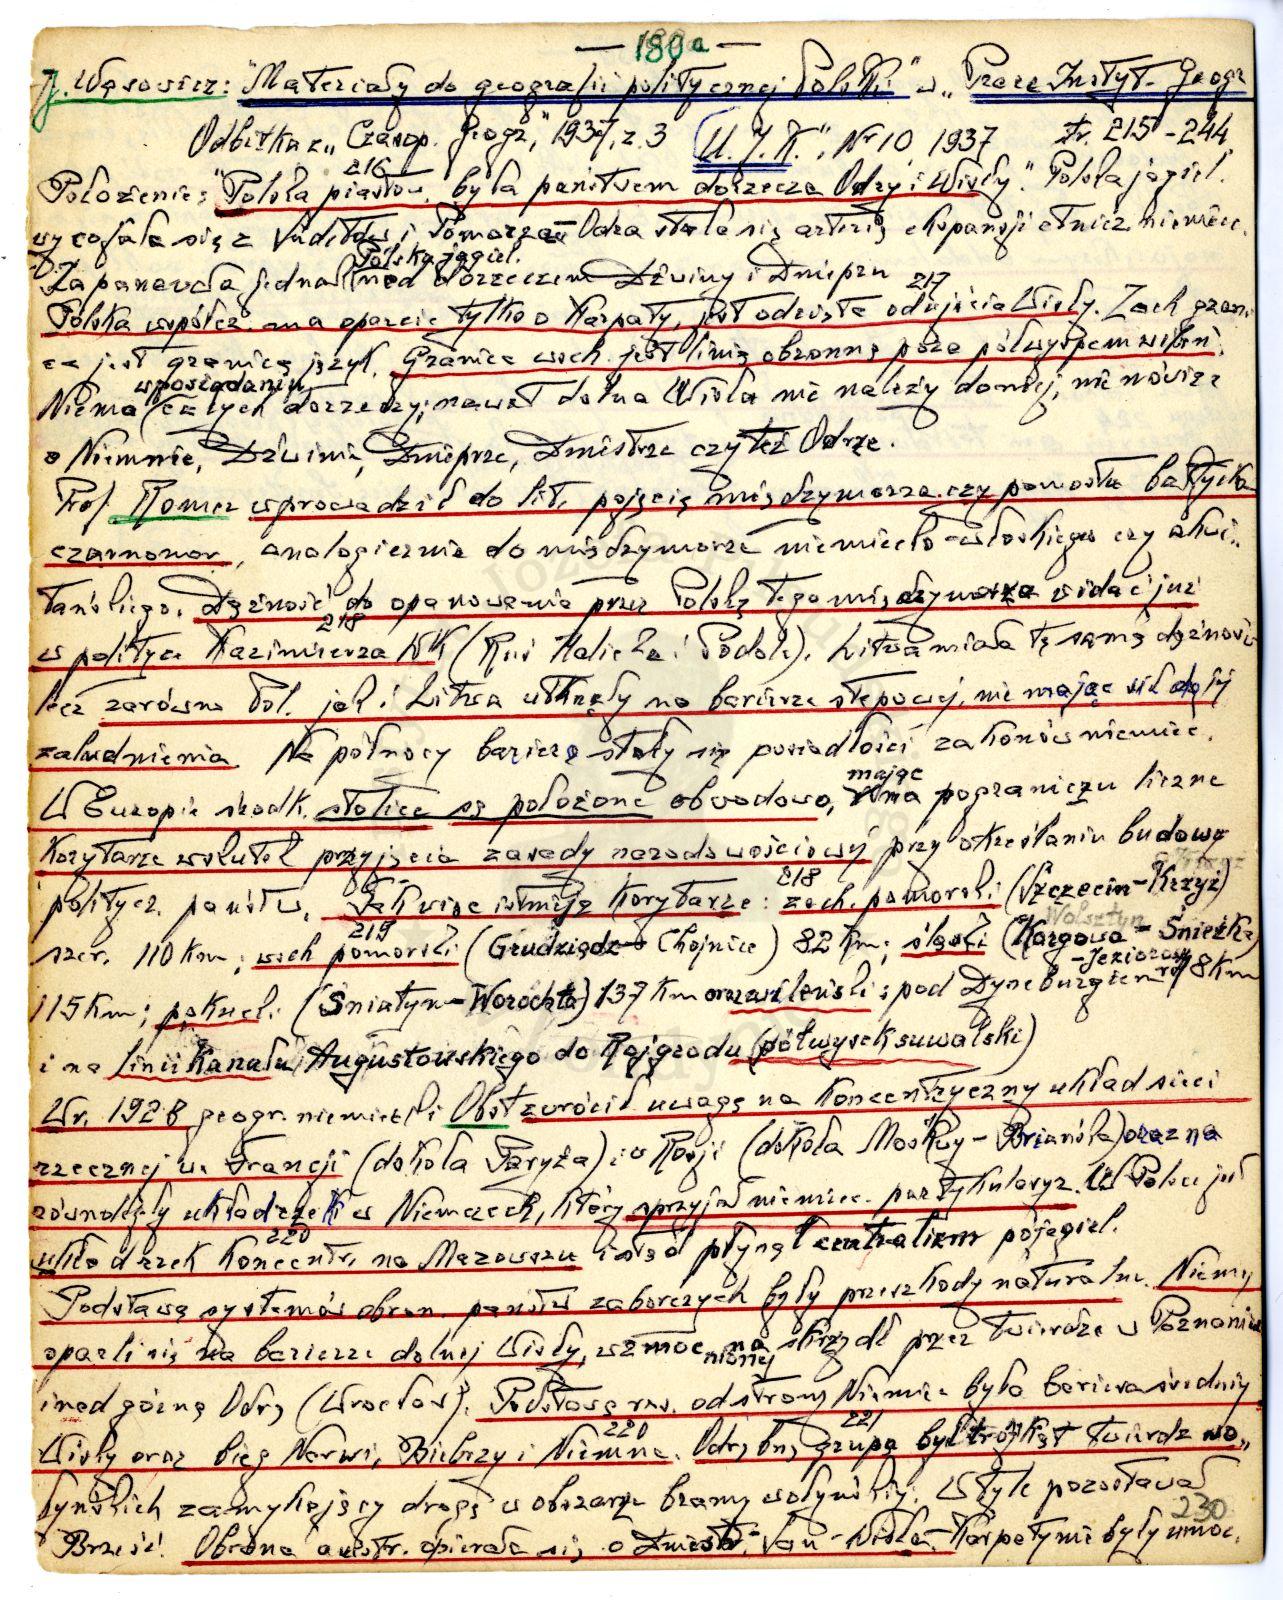 — 180a —
J. Wąsowicz: "Materiały do geografii politycznej Polski" w „Prace Instyt. Geogr
Odbitka z „Czasop. Geogr.", 1937, z. 3 U.J.K.", Nr 10 1937 str. 215-244
216
Położenie: "Polska piastow. była państwem dorzecza Odry i Wisły". Polska jagiel.
wycofała się z Sudetów i Pomorza - Odra stała się arterią ekspansji etnicz. niemiec.
Polska jagiel.
Zapanowała jednak nad dorzeczem Dźwiny i Dniepru 217
Polska współcz. ma oparcie tylko o Karpaty, jest odcięta od ujścia Wisły. Zach. grani-
ca jest granicą język. Granica wsch. jest linią obronną poza półwyspem wileń.
w posiadaniu
Niema całych dorzeczy; nawet dolna Wisła nie należy do niej, nie mówiąc
o Niemnie, Dźwinie, Dnieprze, Dniestrze czy też Odrze.
Prof. Romer wprowadził do lit. pojęcie międzymorza czy pomostu bałtycko
czarnomor., analogicznie do międzymorza niemiecko-włoskiego czy akwi-
tańskiego. Dążność do opanowania przez Polskę tego międzymorza widać już
218
w polityce Kazimierza Wk (Ruś Halicka i Podole). Litwa miała tę samą dążność
lecz zarówno Pol. jak i Litwa utknęły na barierze stepowej, nie mając siły
zaludnienia. Na północy barierą stały się posiadłości zakonów niemiec.
mając
W Europie środk. stolice są położone obwodowo, na pograniczu liczne
Korytarze wskutek przyjęcia zasady narodowościowej przy określaniu budowy
218
politycz. państw. Tak więc istnieją korytarze: zach. pomorski (Szczecin-Krzyż)
219 Wolsztyn
szer. 110 km; wsch. pomorski (Grudziądz - Chojnice) 82 km; śląski (Kargowa - Śnieżka)
- Jeziorosy
115 km; pokuck. (Śniatyn-Worochta) 137 km oraz wileński; pod Dyneburgiem 18 km
i na linii Kanału Augustowskiego do Rajgrodu (półwysek suwalski)
W r. 1928 geogr. niemiecki Obst zwrócił uwagę na koncentryczny układ sieci
rzecznej w Francji (dokoła Paryża) i w Rosji (dokoła Moskwy - Briańska) oraz na
równoległy układ rzek w Niemczech, który sprzyjał niemiec. partykularyz. W Polsce jest
220
układ rzek koncentr. na Mazowszu i stąd płynął centralizm pojagiel.
Podstawą systemów obron. państw zaborczych były przeszkody naturaln. Niemcy
oparli się na barierze dolnej Wisły, wzmocnionej na skrzydł. przez twierdze w Poznaniu
i nad górną Odrą (Wrocław). Podstawą ros. od strony Niemiec była bariera średniej
220 221
Wisły oraz bieg Narwi, Biebrzy i Niemna. Odrębną grupą był trójkąt twierdz wo-
łyńskich zamykający drogę w obszarze bramy wołyńskiej. W tyle pozostawał
230
Brześć. Obrona austr. opierała się o Dniestr, San - Wisłę. Karpaty nie były umoc.